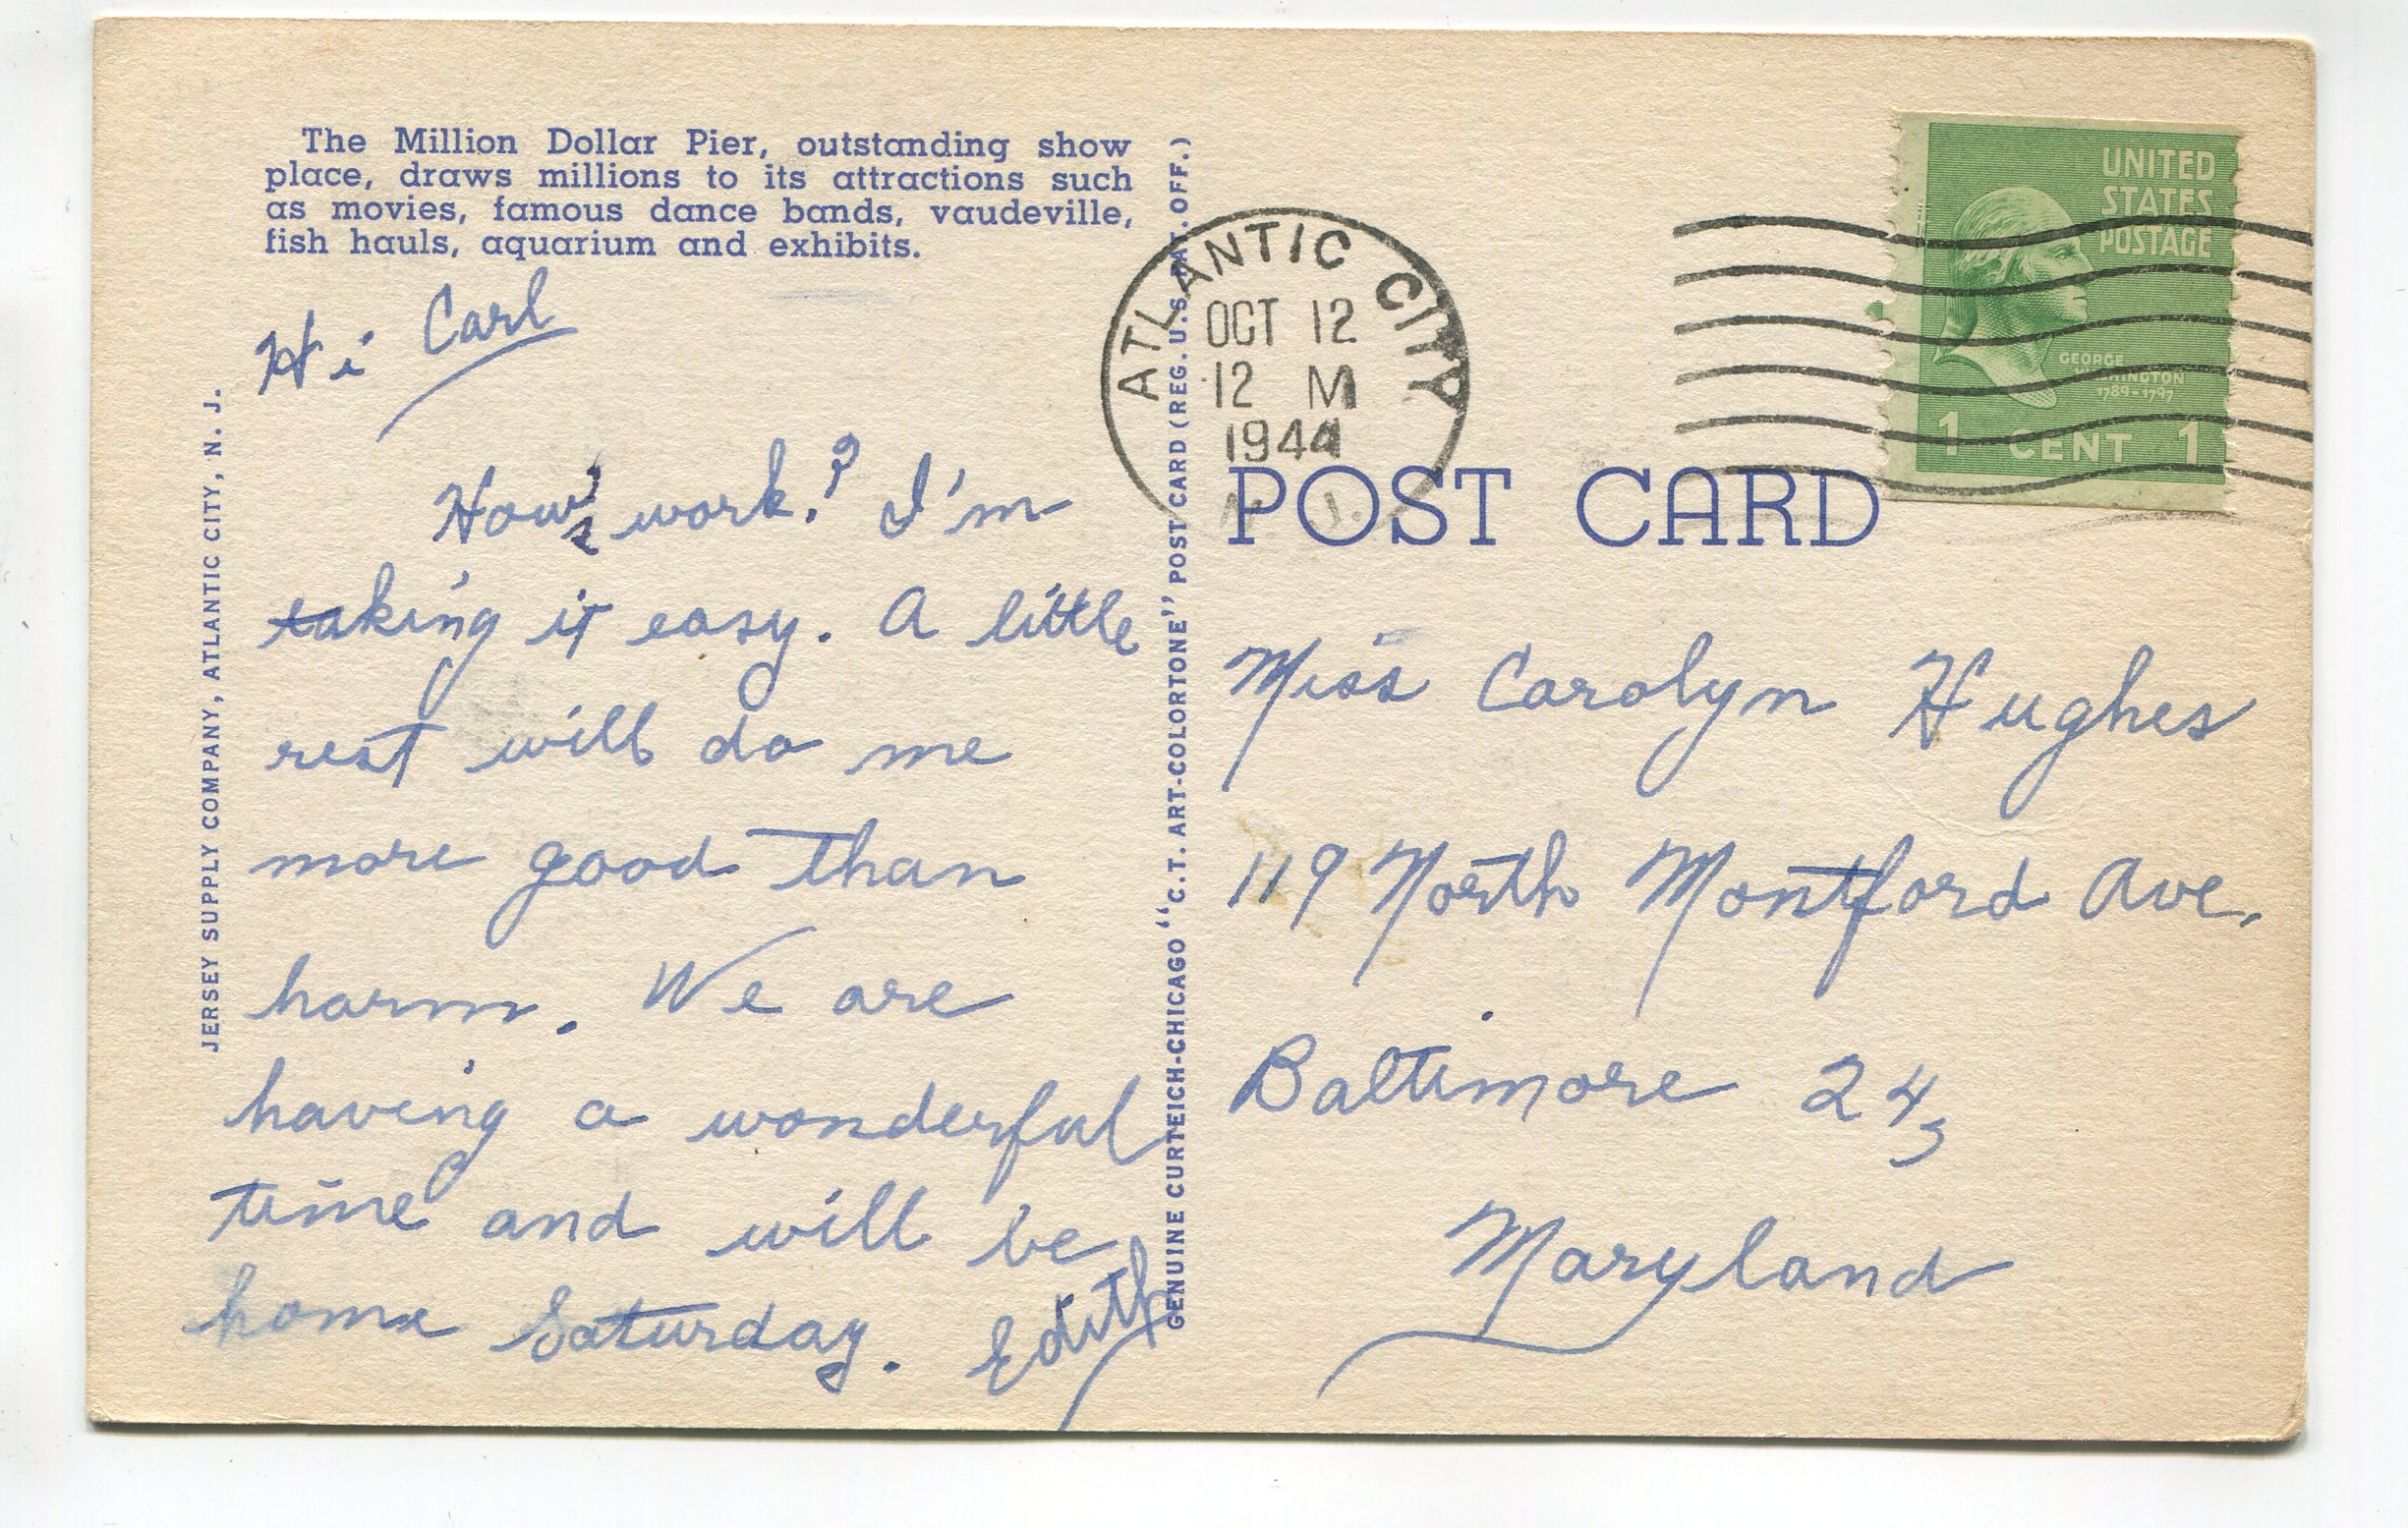 The Million Dollar Pier, outstanding show
place, draws millions to its attractions such
as movies, famous dance bands, vaudeville,
fish hauls, aquarium and exhibits.
Hi Carl
How's work? I'm
taking it easy. A little
rest will do me
more good than
harm. We are
having a wonderful
time and will be
home Saturday. Edith
JERSEY SUPPLY COMPANY, ATLANTIC CITY, N. J.
GENUINE CURTEICH-CHICAGO "C.T. ART-COLORTONE" POST CARD (REG. U.S. PAT. OFF.)
ATLANTIC CITY
OCT 12
12 M
1944
N. J.
UNITED
STATES
POSTAGE
GEORGE
WASHINGTON
1789-1797
1 CENT 1
POST CARD
Miss Carolyn Hughes
119 North Montford Ave.
Baltimore 24,
Maryland